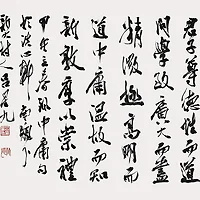 君子尊德性而道
問學致廣大而盡
精微極高明而
道中庸溫故而知
新敦厚以崇禮
甲午立春 中庸句